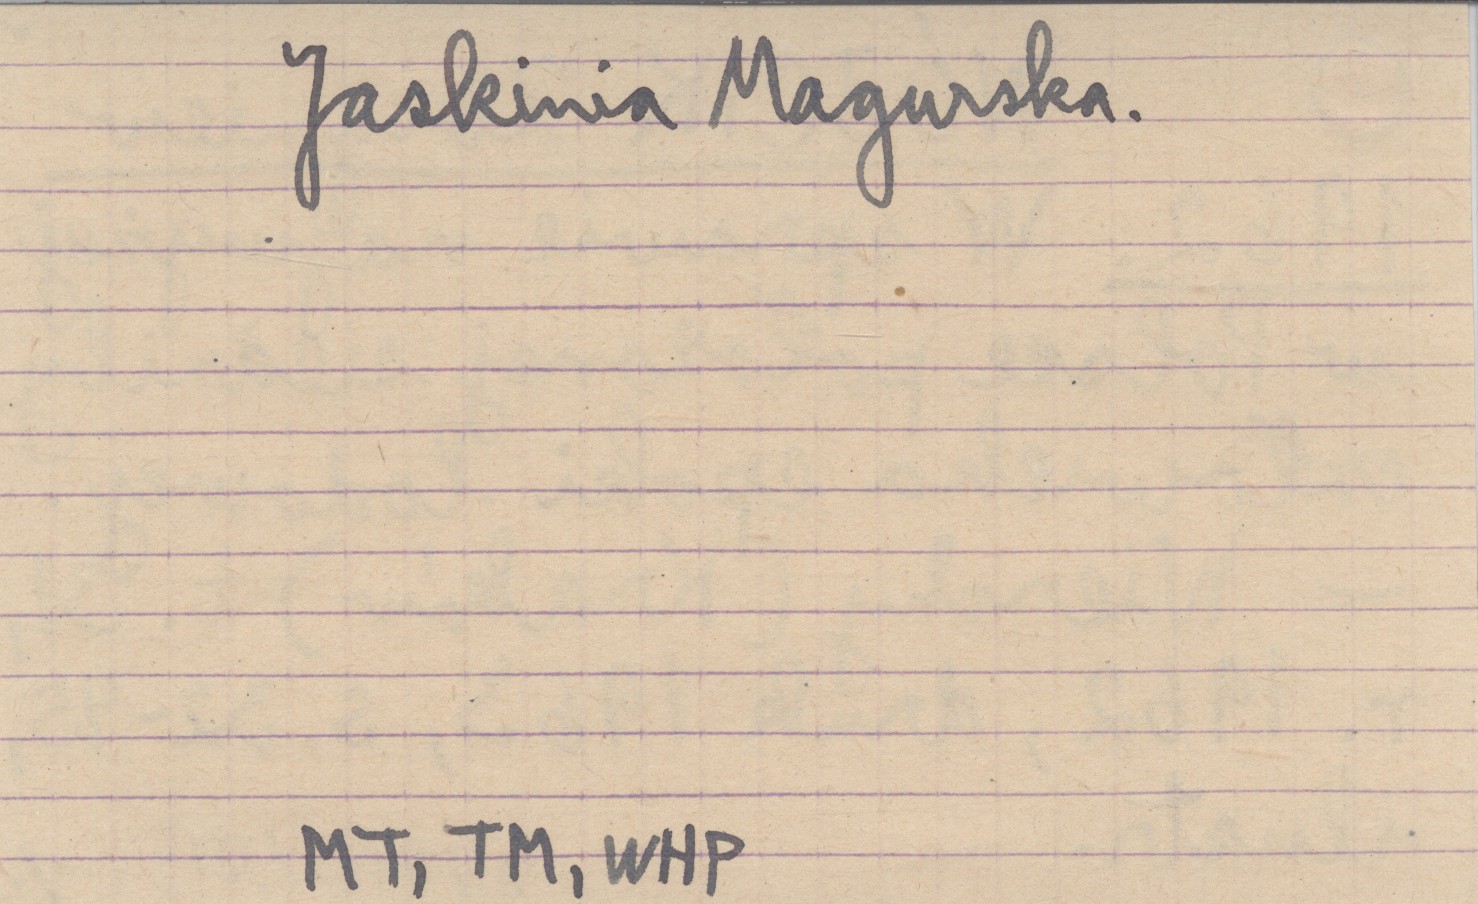 Jaskinia Magurska.
MT, TM, WHP